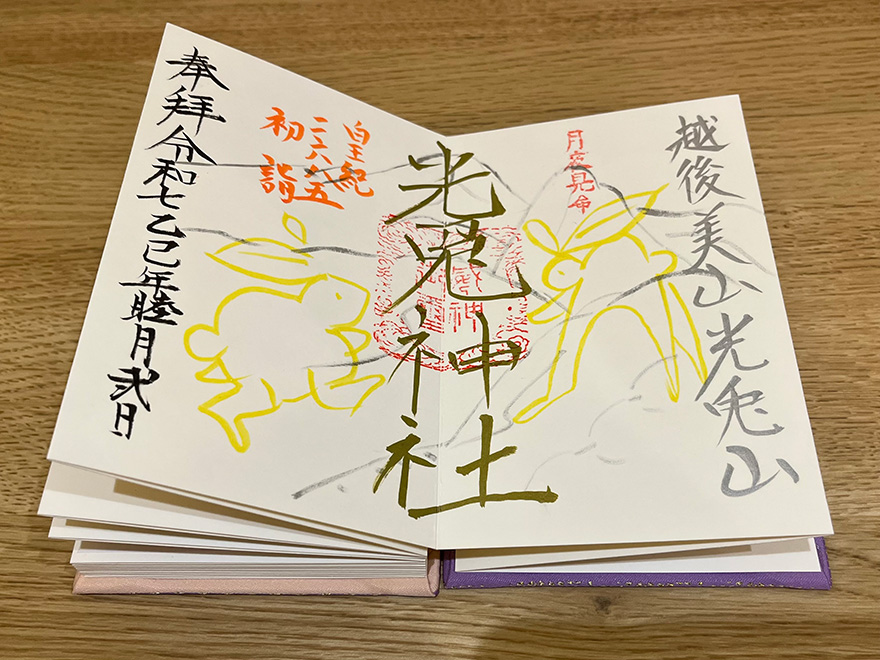 越後美山光兎山
月夜見命
光兎神社
皇紀
二六八五
初詣
奉拝令和七乙巳年睦月弐日